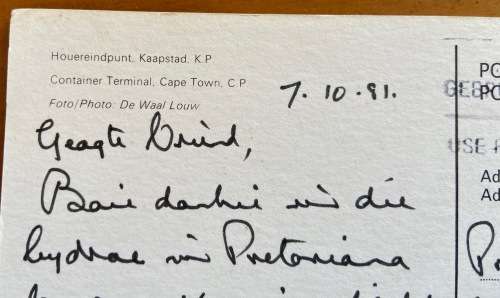 Houereindpunt, Kaapstad, K P
Container Terminal, Cape Town, C P
Foto/Photo: De Waal Louw
7.10.81.
Geagte Vriend,
Baie dankie vir die
bydrae vir Pretoriana
PO
PO
USE
Ad
Ad